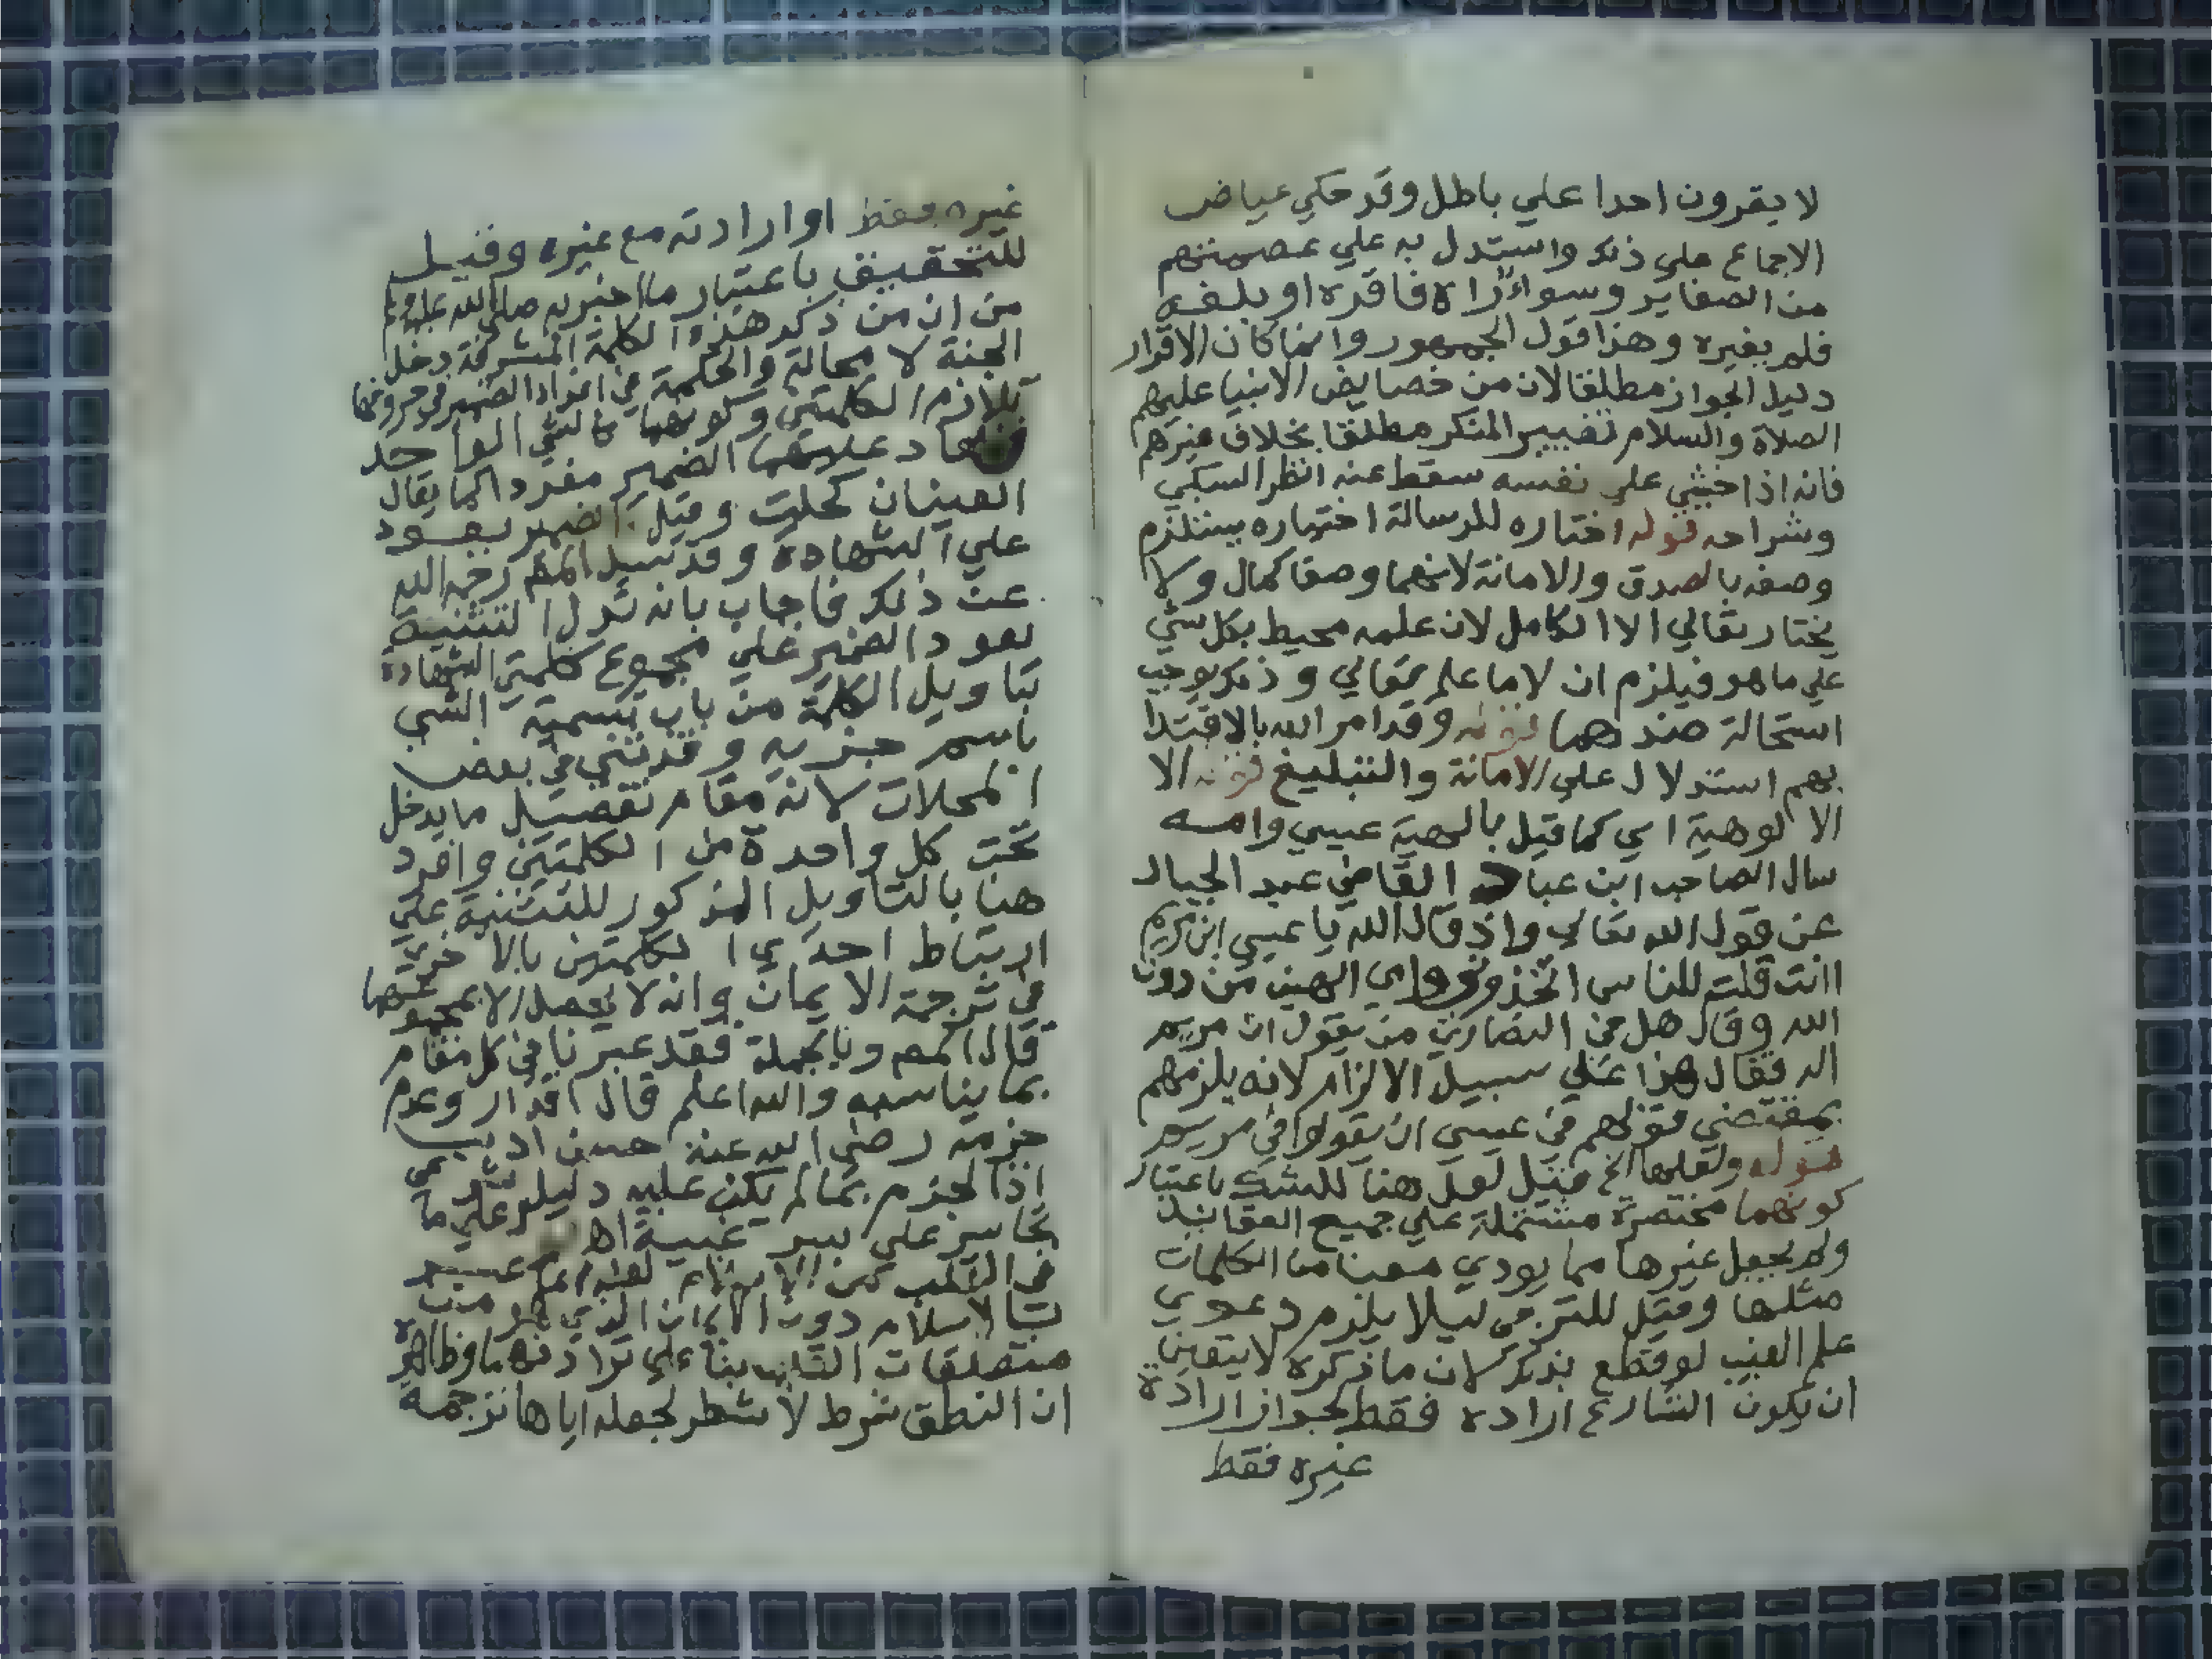 لا يقرون احدا علي باطل وقد حكي عياض
الاجماع علي ذلك واستدل به علي عصمتهم
من الصغاير وسواء راه فاقره او بلغه
فلم يغيره وهذا قول الجمهور وانما كان الاقرار
دليل الجواز مطلقا لان من خصايص الانبيا عليهم
الصلاة والسلام تغيير المنكر مطلقا بخلاف غيرهم
فانه اذا خشي علي نفسه سقط عنه انظر السبكي
وشراحه قوله اختاره للرسالة اختياره يستلزم
وصفه بالصدق والامانة لانهما وصفا كمال ولا
يختار تعالي الا الكامل لان علمه محيط بكل شي
علي ما هو فيلزم ان لاما علم تعالي وذلك يوجب
استحالة ضدهما قوله وقد امر الله بالاقتدا
بهم استدلال علي الامانة والتبليغ قوله الا
الالوهية اي كما قيل بالهية عيسي وامه
سال الصاحب ابن عباد القاضي عبد الجبار
عن قول الله تعالي واذ قال الله يا عيسي ابن مريم
اانت قلت للناس اتخذوني وامي الهين من دون
الله وقال هل في النصاري من يقول ان مريم
اله فقال هذا علي سبيل الالزام لانه يلزمهم
بمقتضي قولهم في عيسي ان يقولوا في مريم
قوله ولعلها الخ قيل لعل هنا للشك باعتبار
كونهما مختصرة مشتملة علي جميع العقايد
ولم يجعل غيرها مما يودي معنا من الكلمات
مثلها وقيل للترجي ليلا يلزم دعوي
علم الغيب لو قطع بذلك لان ما ذكره لا يتعين
ان يكون الشارع اراده فقط لجواز ارادة
غيره فقط
غيره فقط او ارادته مع غيره وقيل
للتحقيق باعتبار ما اخبر به صلي الله عليه وسلم
من ان من ذكر هذه الكلمة المشرفة دخل
الجنة لا محالة والحكمة في افراد الضمير في حروفها
تلازم الكلمتين وكونهما كالشي الواحد
فعاد عليهما الضمير مفردا كما يقال
العينان كحلت وقيل الضمير يعود
علي الشهادة وقد سيل المص رحمه الله
عن ذلك فاجاب بانه ترك التثنية
لعود الضمير علي مجموع كلمتي الشهادة
بتاويل الكلمة من باب تسمية الشي
باسم جزيه وقد ثني في بعض
المحلات لانه مقام تفصيل ما يدخل
تحت كل واحدة من الكلمتين وافرد
هنا بالتاويل المذكور للتنبيه علي
ارتباط احدي الكلمتين بالاخري
في ترجمة الايمان وانه لا يحصل الا بمجموعهما
قال المص وبالجملة فقد عبرنا في كل مقام
بما يناسبه والله اعلم قال اقدار وعدم
جزمه رضي الله عنه حسن ادب
اذ الجزم بما لم يكن عليه دليل شرعي
تجاسر علي سر غيبه اه علي ما
في القلب من الاسلام
بالاسلام دون الايمان الذي هو من
متعلقات القلب بناء علي ترادفهما وظاهره
ان النطق شرط لا شطر لجعله اياها ترجمه